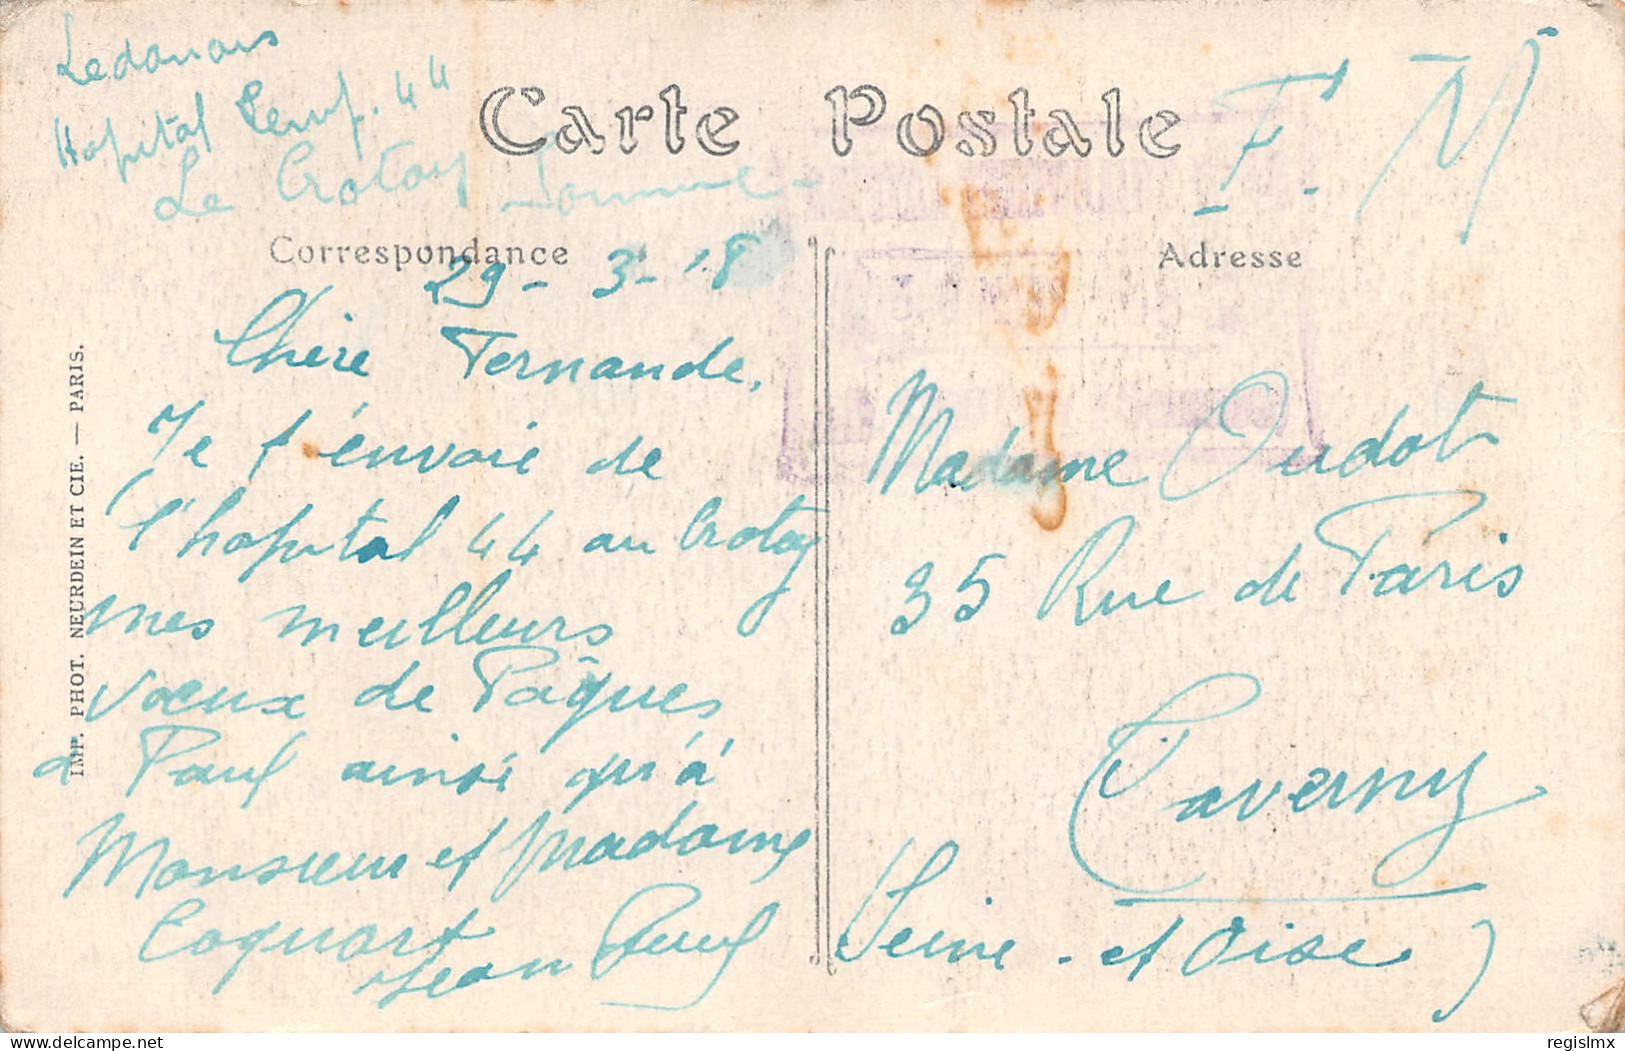 Hopital Temp. 44
Le Crotoy Somme
Carte Postale
F. M
Correspondance
Adresse
29 - 3 - 18
Chère Fernande,
Je t'envoie de
l'hopital 44 au Crotoy
mes meilleurs
voeux de Pâques
à Paul ainsi qu'à
Monsieur et Madame
Coquart
Jean Paul
Madame Oudot
35 Rue de Paris
Taverny
(Seine - et Oise)
IMP. PHOT. NEURDEIN ET CIE. — PARIS.
regislmx @ delcampe.net